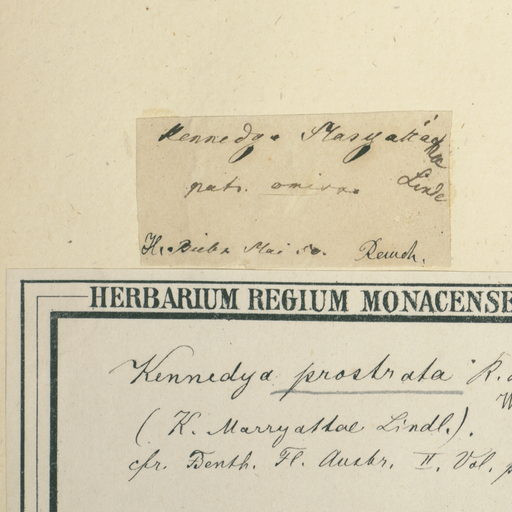 Kennedya Maryattae
Lindl
patr. omissa
H. Mai 50.
HERBARIUM REGIUM MONACENSE
Kennedya prostrata R.
W
( K. Marryattae Lindl.).
cfr. Benth. Fl. Austr. II. Vol. p